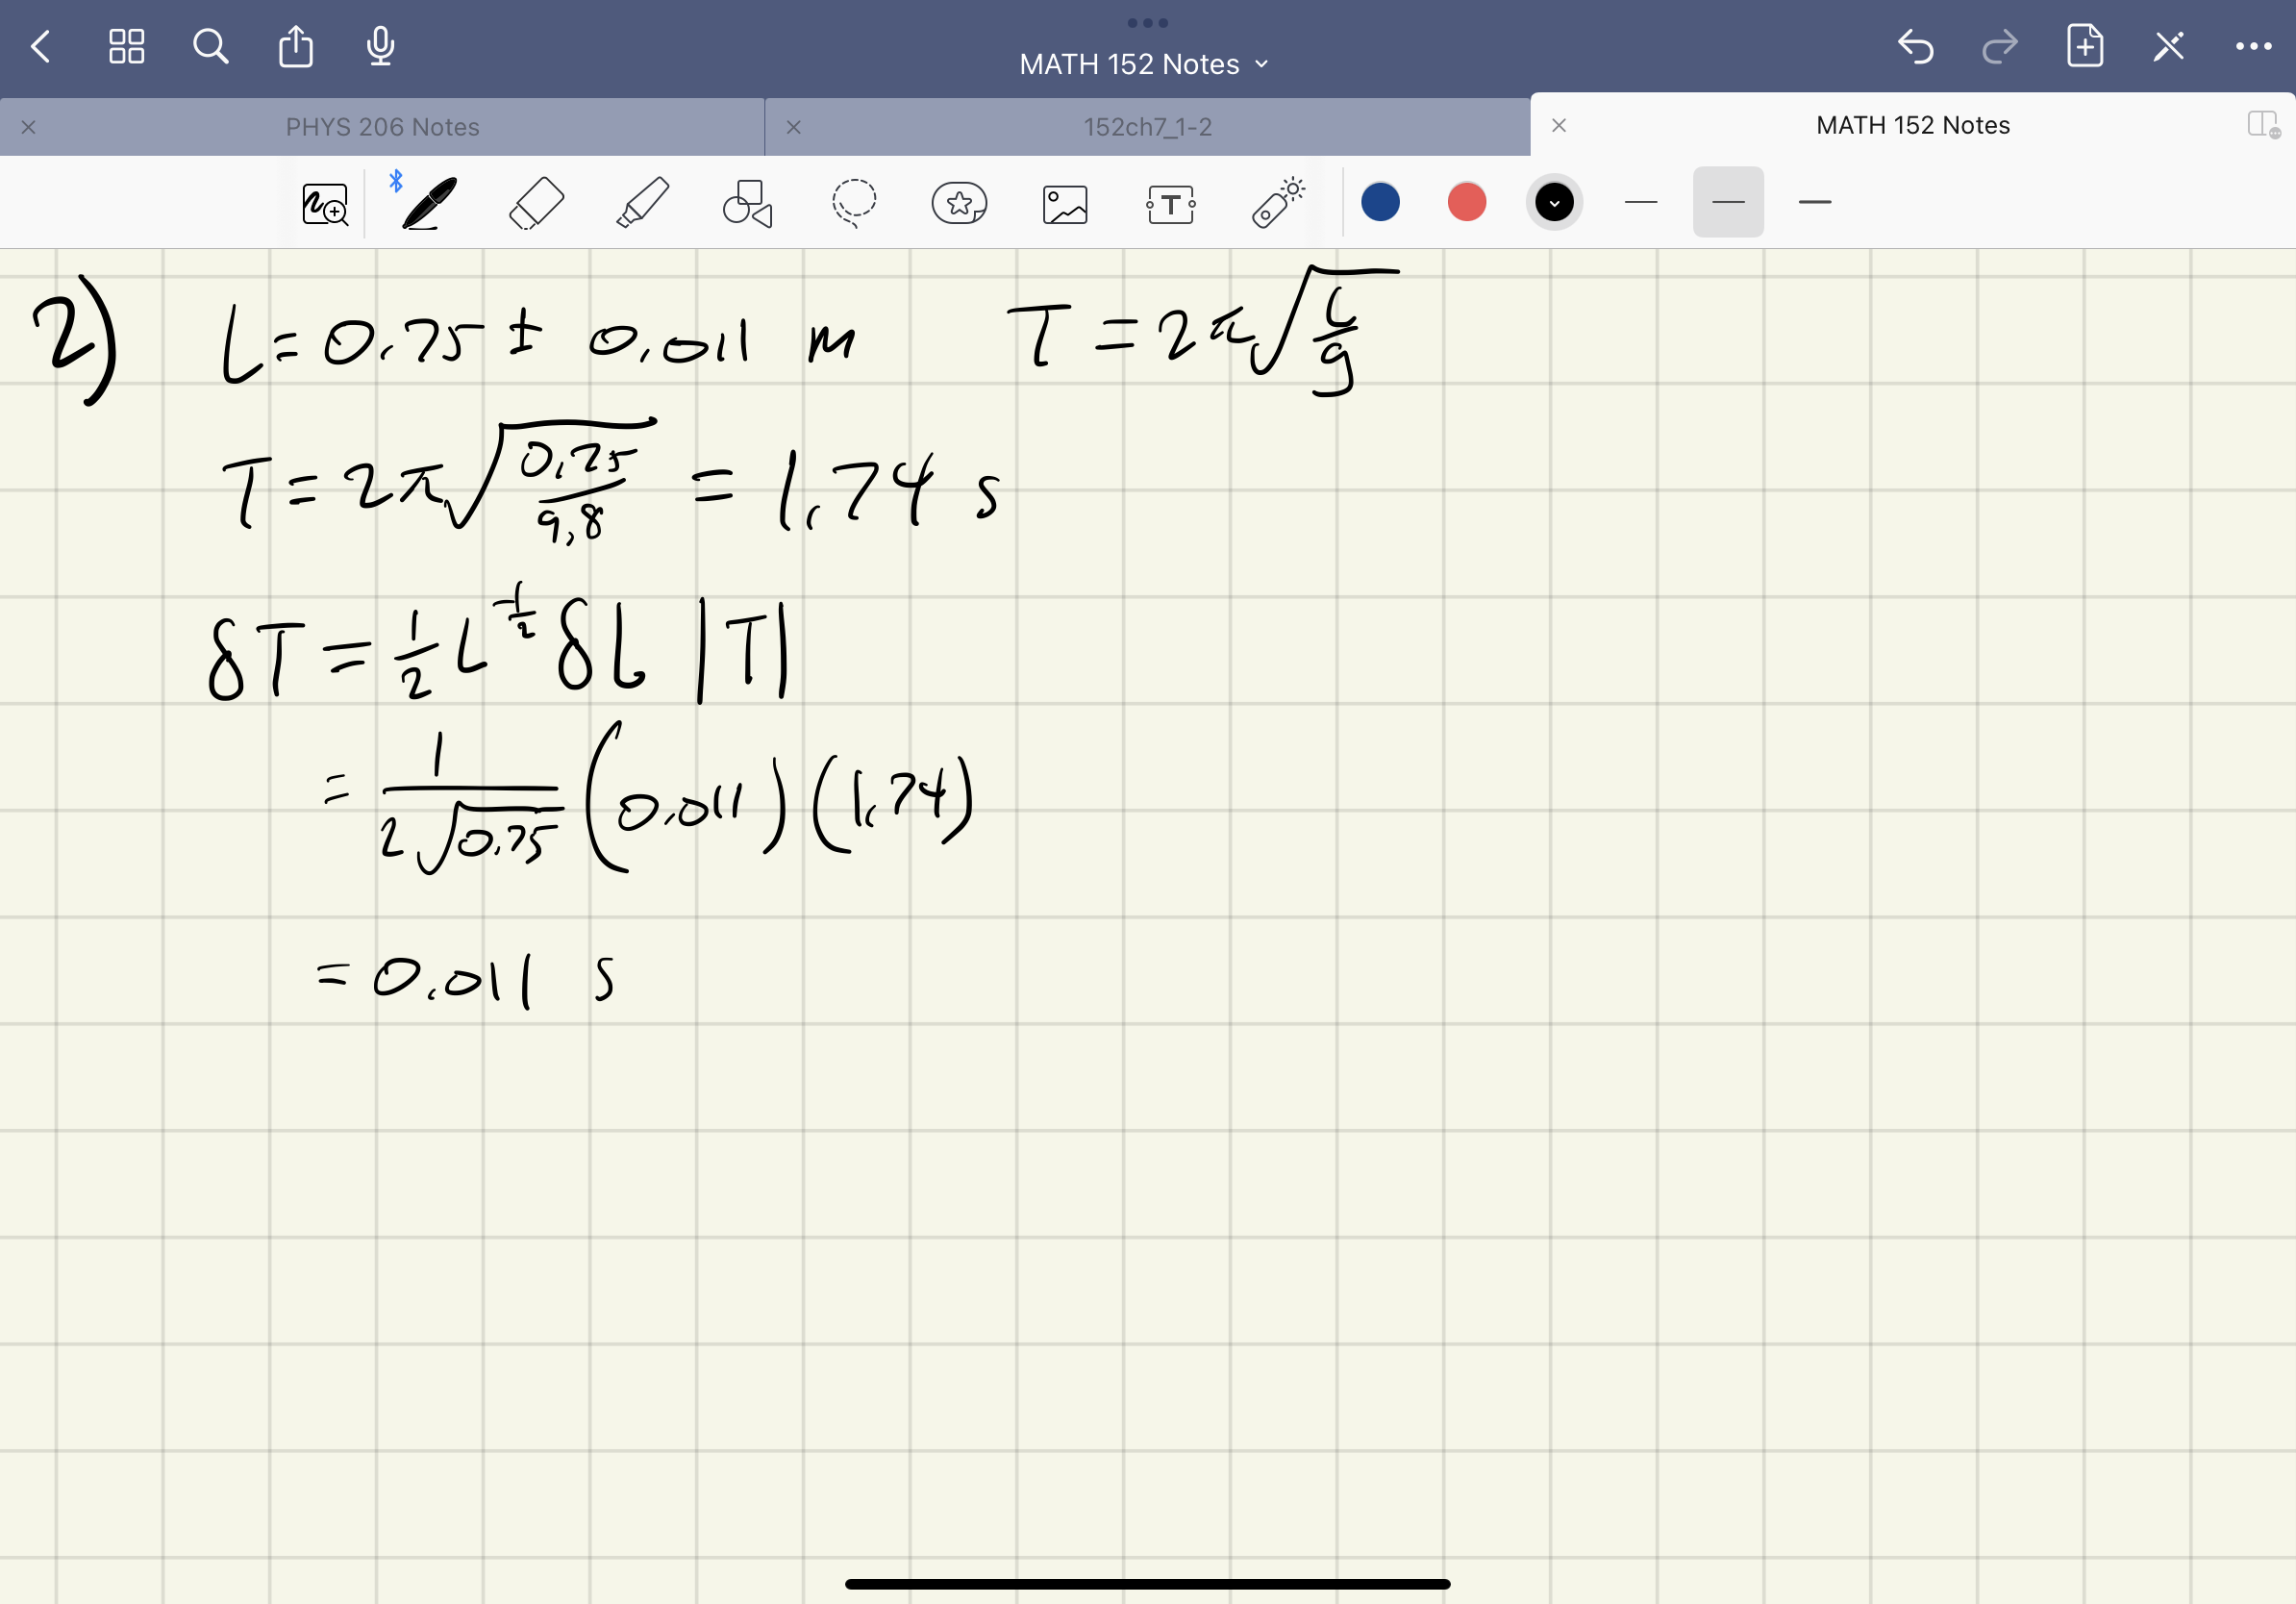 MATH 152 Notes
PHYS 206 Notes
152ch7_1-2
MATH 152 Notes
2) L = 0.75 ± 0.011 m T = 2π√(L/g)
T = 2π√(0.75/9.8) = 1.74 s
δT = 1/2 L^(-1/2) δL |T|
= 1/(2√0.75) (0.011) (1.74)
= 0.011 s